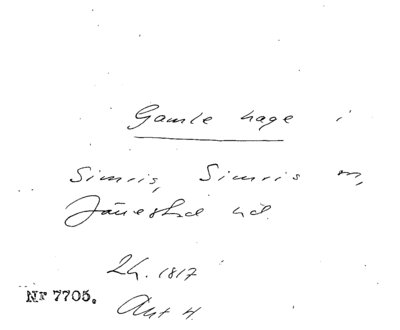 Gamle hage i
Simris, Simris sn,
Järrestad hd.
Lh. 1817
Nr 7705.
Akt 4.